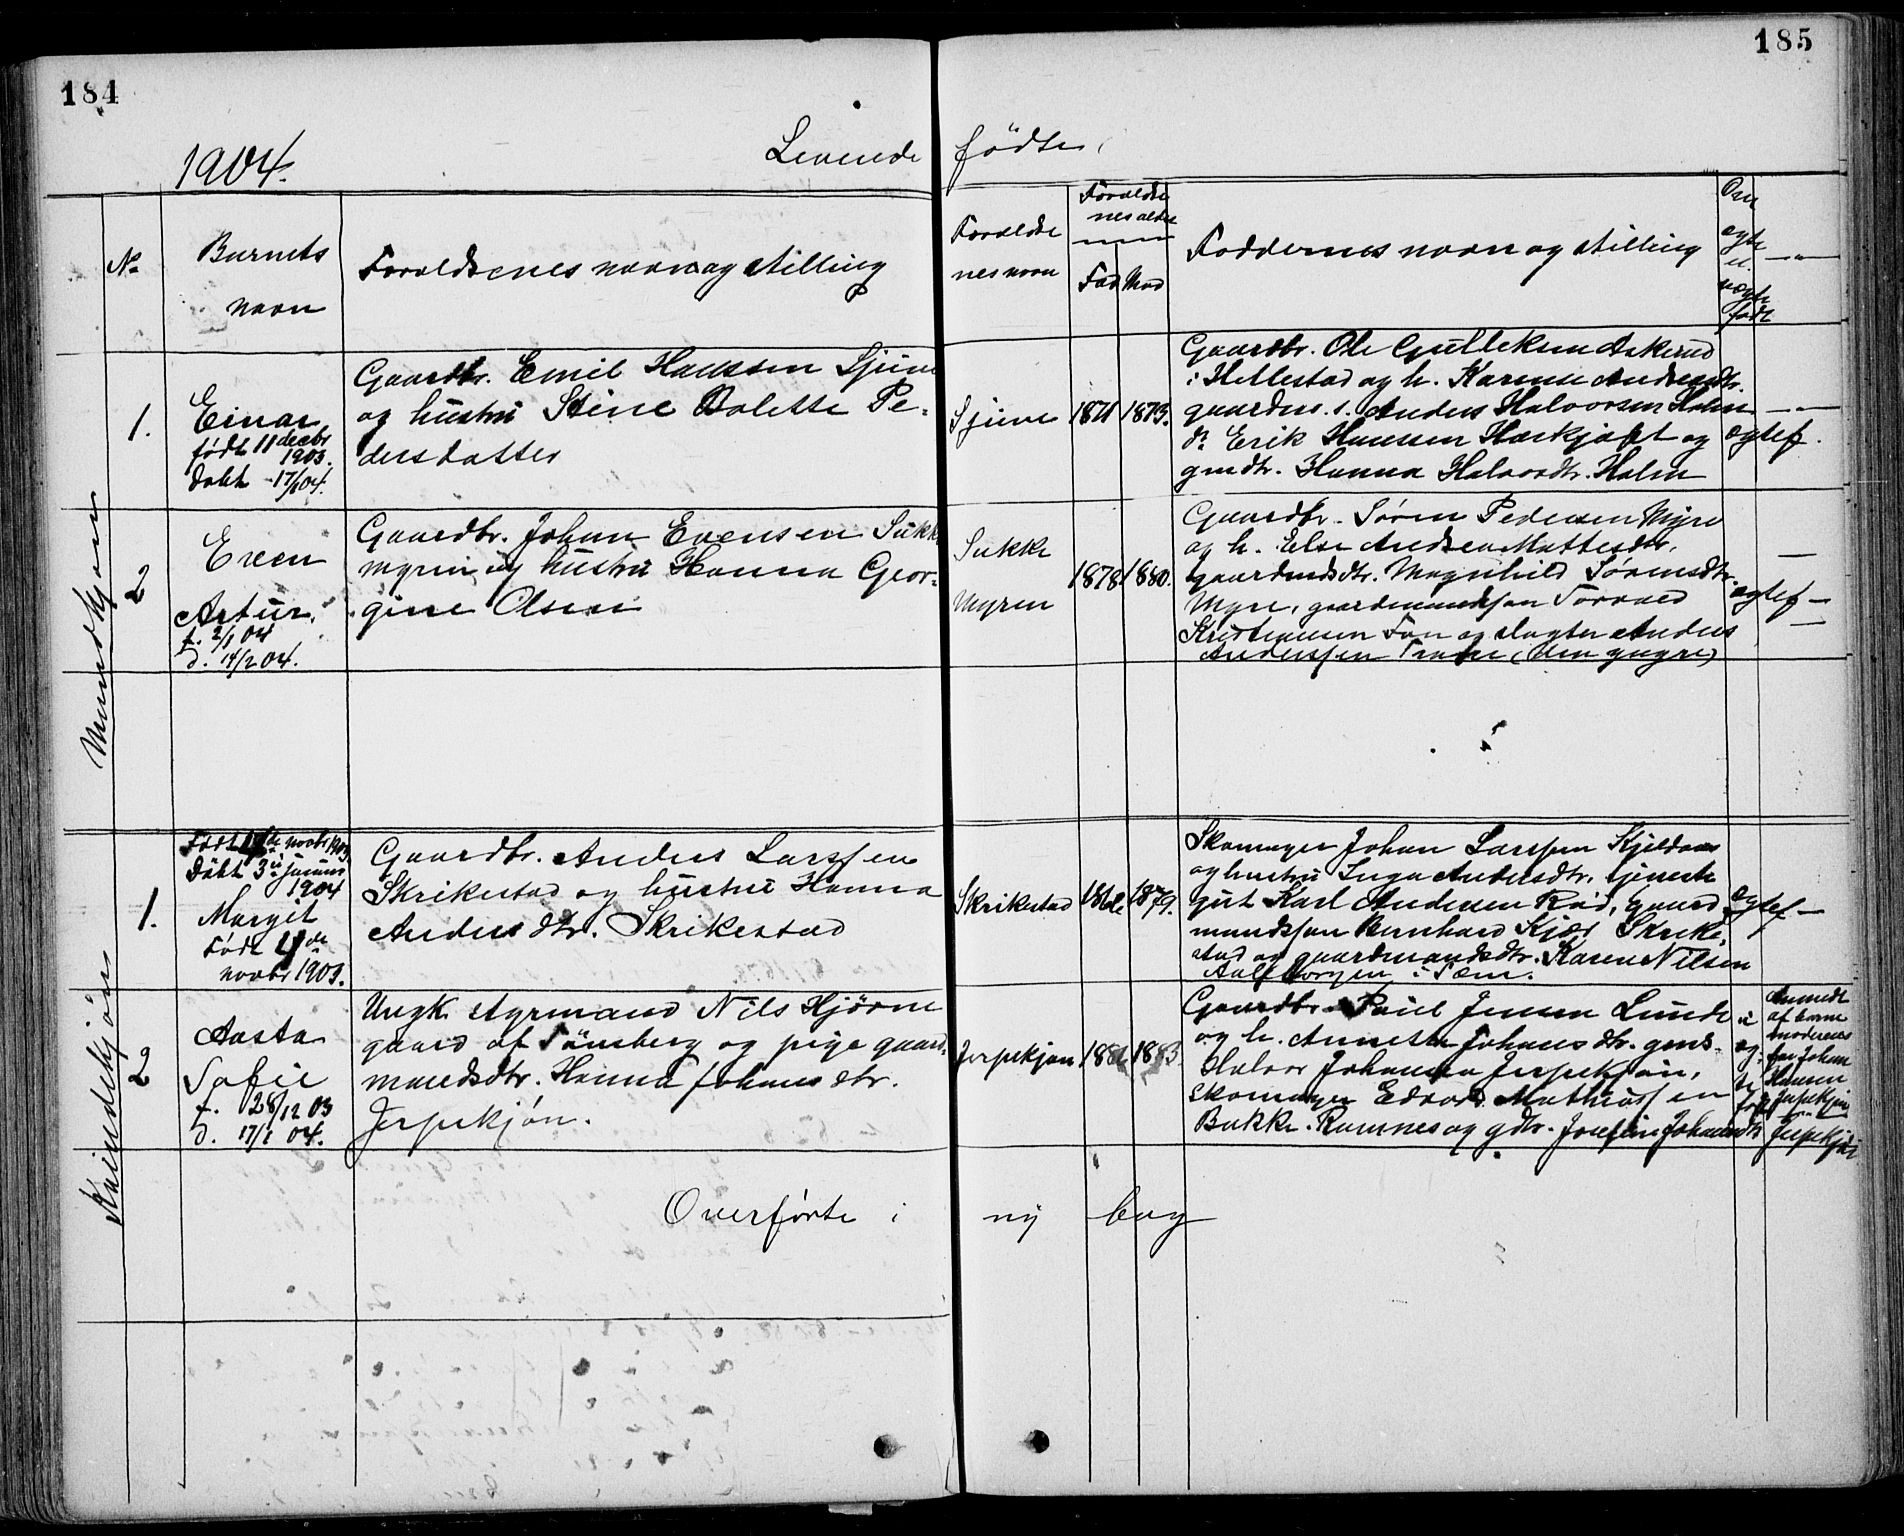 184
185
1904.
Levende fødte
No
Barnets
navn
Forældrenes navn og stilling
Forældre
nes navn
Forældre
nes alder
Fad Mod
Faddernes navn og stilling
Om
ægte
el.
uægte
født
Mandkjøn
1.
Einar
født 11 decbr
1903.
Døbt 17/1 04.
Gaardbr. Emil Hanssen Sjue
og hustru Stine Bolette Pe-
dersdatter
1871 1873.
Gaardbr. Ole Gulleksen Askerud
i Hillestad og h. Karense Andreasdtr.
gaardm. s. Anders Halvorsen Holm
do Erik Hanssen og
gmdtr. Hanna Halvordtr. Holm
ægtef.
2
Even
Artur.
f. 2/1 04
d. 14/2 04.
Gaardbr. Johan Evensen Sukke
myren og hustru Hanna Geor-
gine Olsen
Sukke
myren
1878 1880.
Gaardbr. Søren Pedersen Myre
og h. Else Andrea Mattesdtr.
gaardmdsdtr. Magnhild Sørensdtr.
Myre, gaardmandssøn Torvald
Kristiansen Fon og slagter Anders
Anderssen (den yngre)
ægtef —
Kvindekjøn
1.
Født de novbr 1903
Døbt 3 januar
1904
Margit
Født de
novbr 1903.
Gaardbr. Anders Larssen
Skrikestad og hustru Hanna
Andersdtr. Skrikestad
Skrikestad
1879.
Skomager Johan Larssen
og hustru Inga Andersdtr. tjeneste
gut Karl Andersen Rød, gaard
mandssøn Bernhard Kjær Skrike-
stad og gaardmandsdtr. Karen Nilsen
i Sæm.
ægtef —
2
Aasta
Sofie
f. 28/12 03
d. 17/1 04.
Ungk. Agrmand Nils Hjørne
gaard af Tønsberg og pige gaard-
mandsdtr. Hanna Johansdtr.
Jerpekjøn.
Jerpekjøn
1883
Gaardbr. Paul Jensen Lunde
og h. Annette Johansdtr. gmds.
Halvor Johansen Jerpekjøn,
skomager Edvard Mathiassen
Bakke. Ramnes og gdtr. Josefine Johansdtr
u
æg
te
født
Anmeldt
af barne
moderens
far Johan
Hansen
Jerpekjøn
Jerpekjøn
Overførte i ny bog